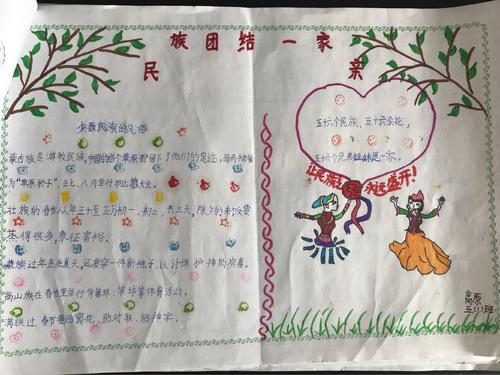 民族团结一家亲
少数民族的风俗
蒙古族是游牧民族，中国的各个草原都留下了他们的足迹，因而被誉
为“草原骄子”，在七、八月举行那达慕大会。
壮族的春节从年三十至正月初一、初二，共三天，除夕的米饭要
蒸得很多，象征富裕。
过年是在夏天，还要穿一件新袍子，以讨保护神的欢喜。
高山族在春节里举行背篓球、竿球等体育活动。
满族过春节要贴窗花、贴对联、贴福字。
五十六个民族，五十六朵花，
五十六个兄弟姐妹是一家。
让民族之
永远盛开！
高原
五(1)班